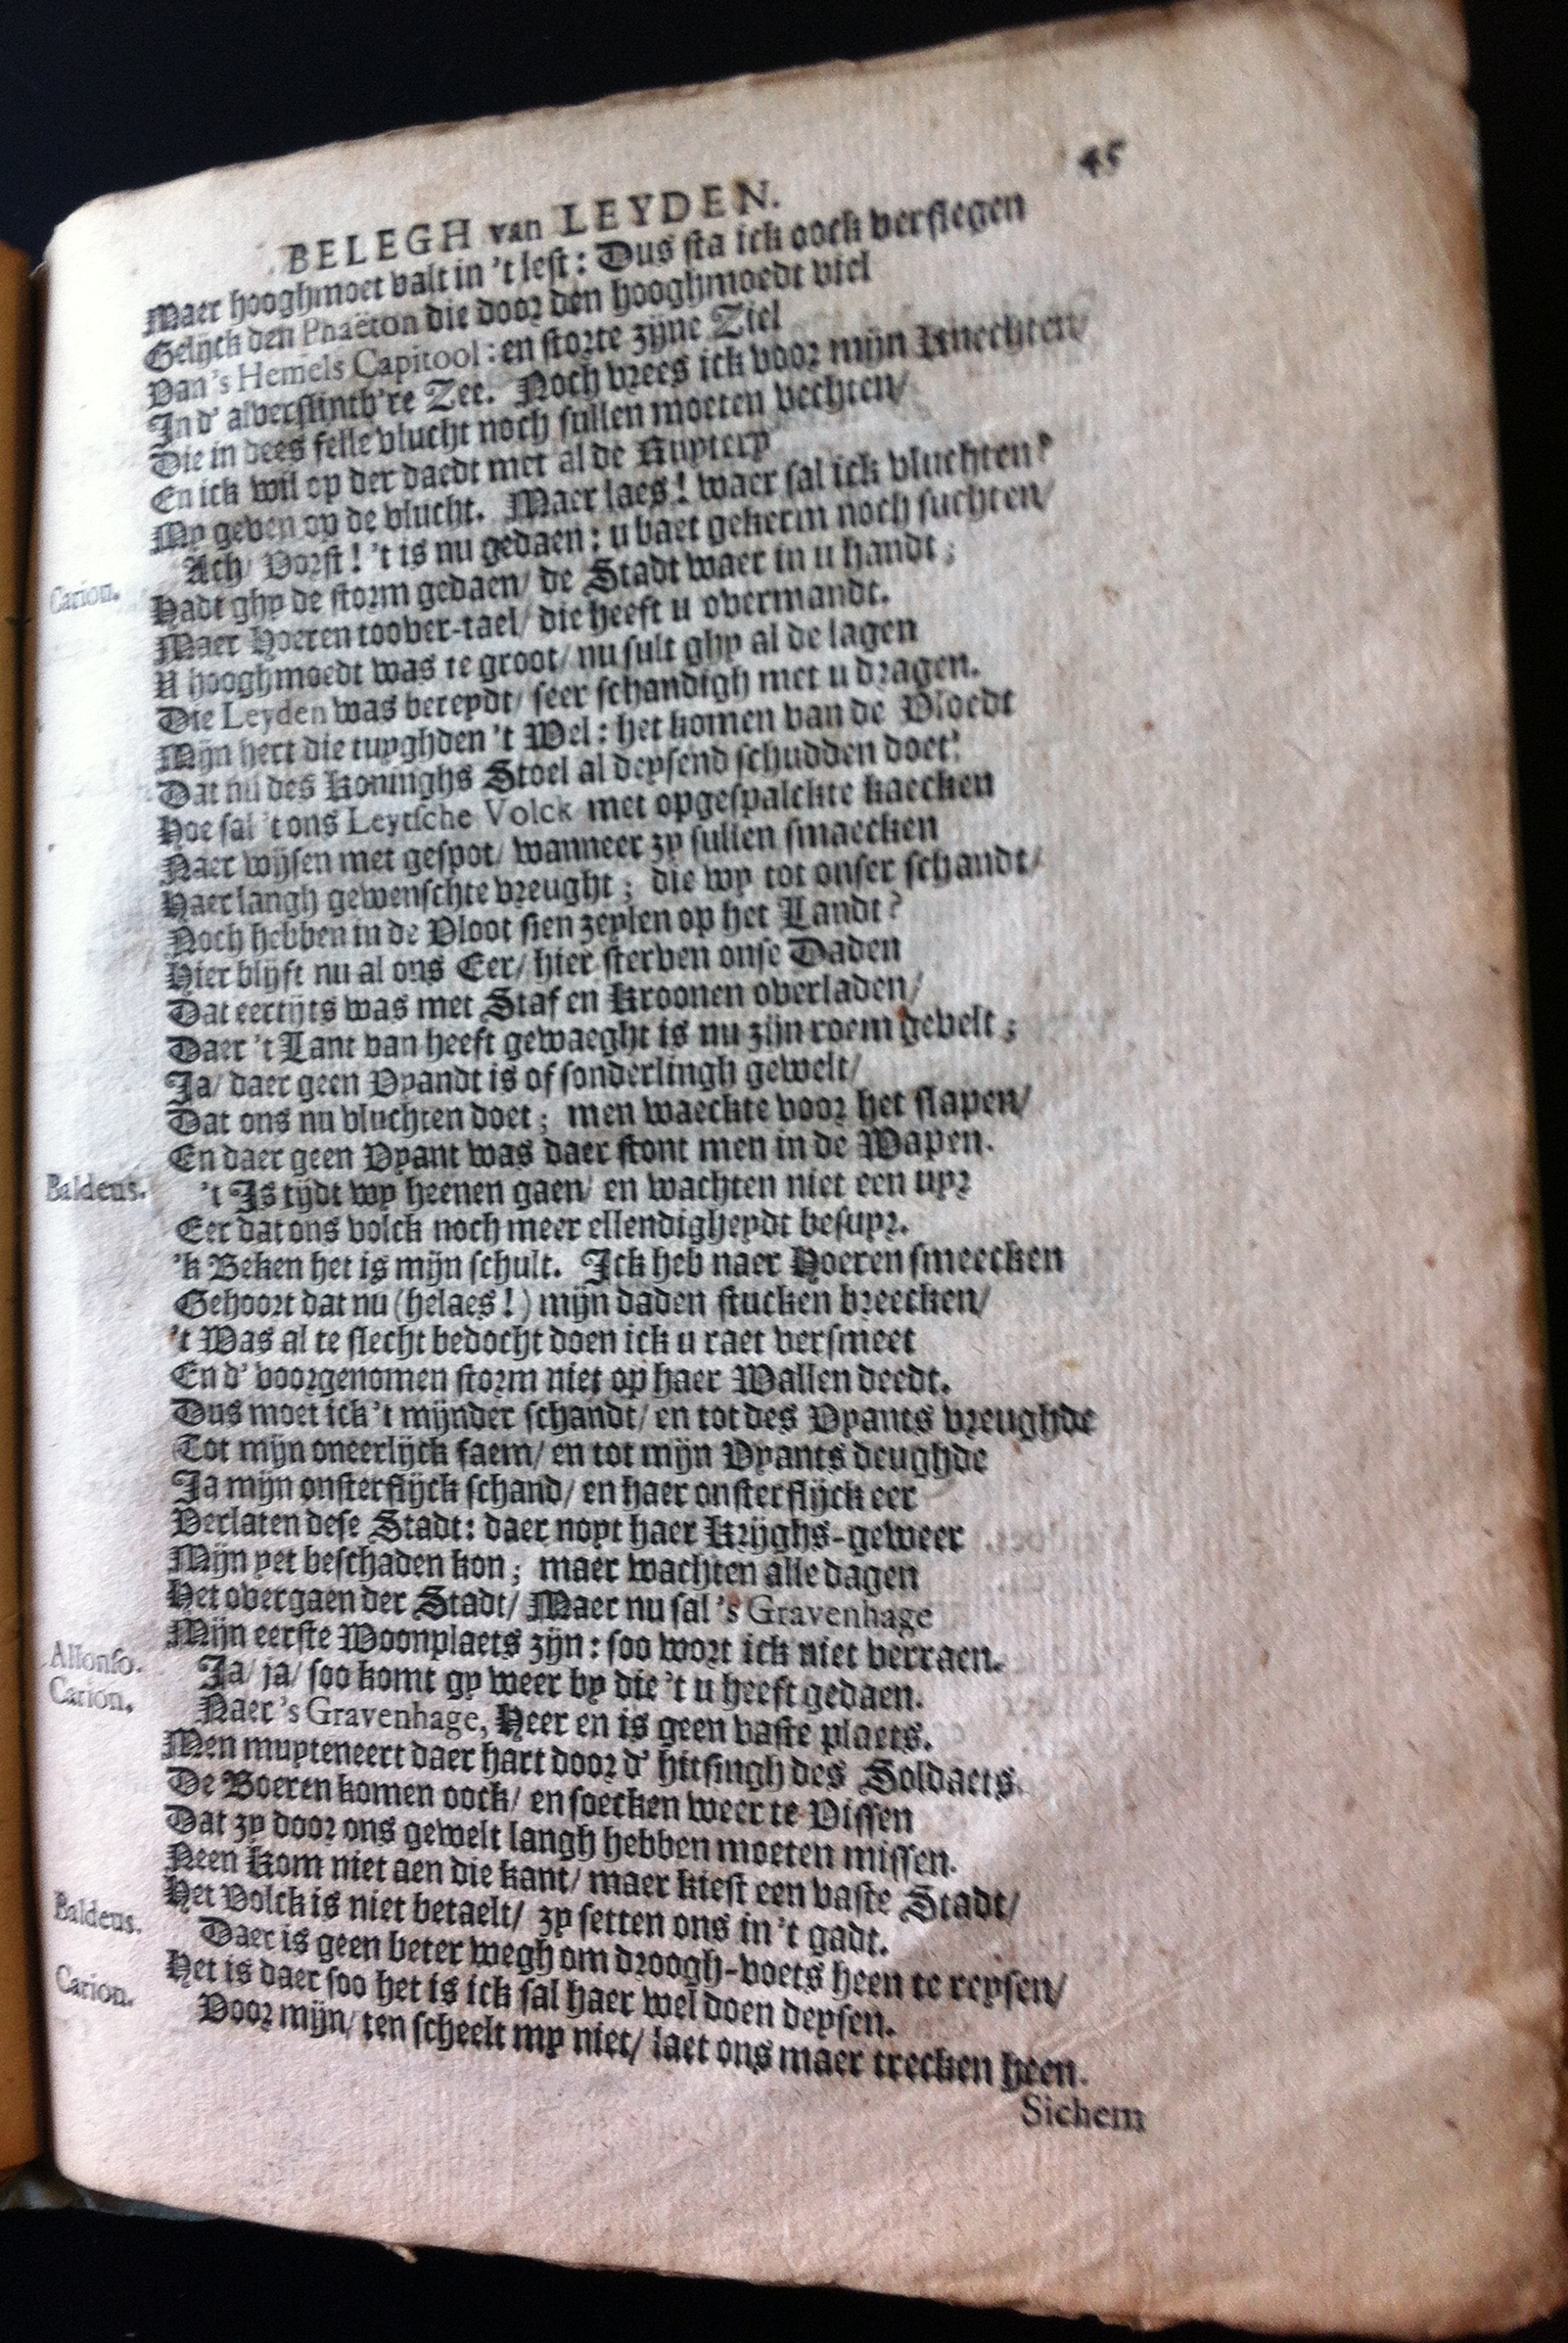 BELEGH van LEYDEN. 45
Maer hooghmoet valt in 't lest: Dus sta ick oock verslegen
Gelijck den Phaëton die door den hooghmoedt viel
Van 's Hemels Capitool: en storte zijne Ziel
In d' alverslintb're Zee. Noch vrees ick voor mijn Knechten/
Die in dees felle vlucht noch sullen moeten vechten/
En ick wil op der daedt met al de Ruytery
My geven op de vlucht. Maer laes! waer sal ick vluchten?
Carion. Ach/ Vorst! 't is nu gedaen: u baet gekerm noch suchten/
Hadt ghy de storm gedaen/ de Stadt waer in u handt;
Maer Hoeren toover-tael/ die heeft u overmandt.
U hooghmoedt was te groot/ nu sult ghy al de lagen
Die Leyden was bereydt/ seer schandigh met u dragen.
Mijn hert die tuyghden 't Wel: het komen van de Vloedt
Dat nu des Koninghs Stoel al deysend schudden doet!
Hoe sal 't ons Leytsche Volck met opgespalckte kaecken
Naer wijsen met gespot/ wanneer zy sullen smaecken
Haer langh gewenschte vreught; die wy tot onser schandt/
Noch hebben in de Vloot sien zeylen op het Landt?
Hier blijft nu al ons Eer/ hier sterven onse Daden
Dat eertijts was met Staf en Kroonen overladen/
Daer 't Lant van heeft gewaeght is nu zijn roem gevelt;
Ja/ daer geen Vyandt is of sonderlingh gewelt/
Dat ons nu vluchten doet; men waeckte voor het slapen/
En daer geen Vyant was daer stont men in de Wapen.
Baldeus. 't Is tijdt wy heenen gaen/ en wachten niet een uyr
Eer dat ons volck noch meer ellendigheydt besuyr.
'k Beken het is mijn schult. Ick heb naer Hoeren smeecken
Gehoort dat nu (helaes!) mijn daden stucken breecken/
't Was al te slecht bedocht doen ick u raet versmeet
En d' voorgenomen storm niet op haer Wallen deedt.
Dus moet ick 't mijnder schandt/ en tot des Vyants vreughde
Tot mijn oneerlijck faem/ en tot mijn Vyants deughde
Ja mijn onsterflijck schand/ en haer onsterflijck eer
Verlaten dese Stadt: daer noyt haer Krijghs-geweer
Mijn yet beschaden kon; maer wachten alle dagen
Het overgaen der Stadt/ Maer nu sal 's Gravenhage
Mijn eerste Woonplaets zijn: soo wort ick niet verraen.
Alfonso. Ja/ ja/ soo komt gy weer by die 't u heeft gedaen.
Carion. Naer 's Gravenhage, Heer en is geen vaste plaets.
Men muyteneert daer hart door d' hitsingh des Soldaets.
De Boeren komen oock/ en soecken weer te Vissen
Dat zy door ons gewelt langh hebben moeten missen.
Neen kom niet aen die kant/ maer kiest een vaste Stadt/
Het Volck is niet betaelt/ zy setten ons in 't gadt.
Baldeus. Daer is geen beter wegh om droogh-voets heen te reysen/
Het is daer soo het is ick sal haer wel doen deysen.
Carion. Voor mijn/ ten scheelt my niet/ laet ons maer trecken heen.
Sichem